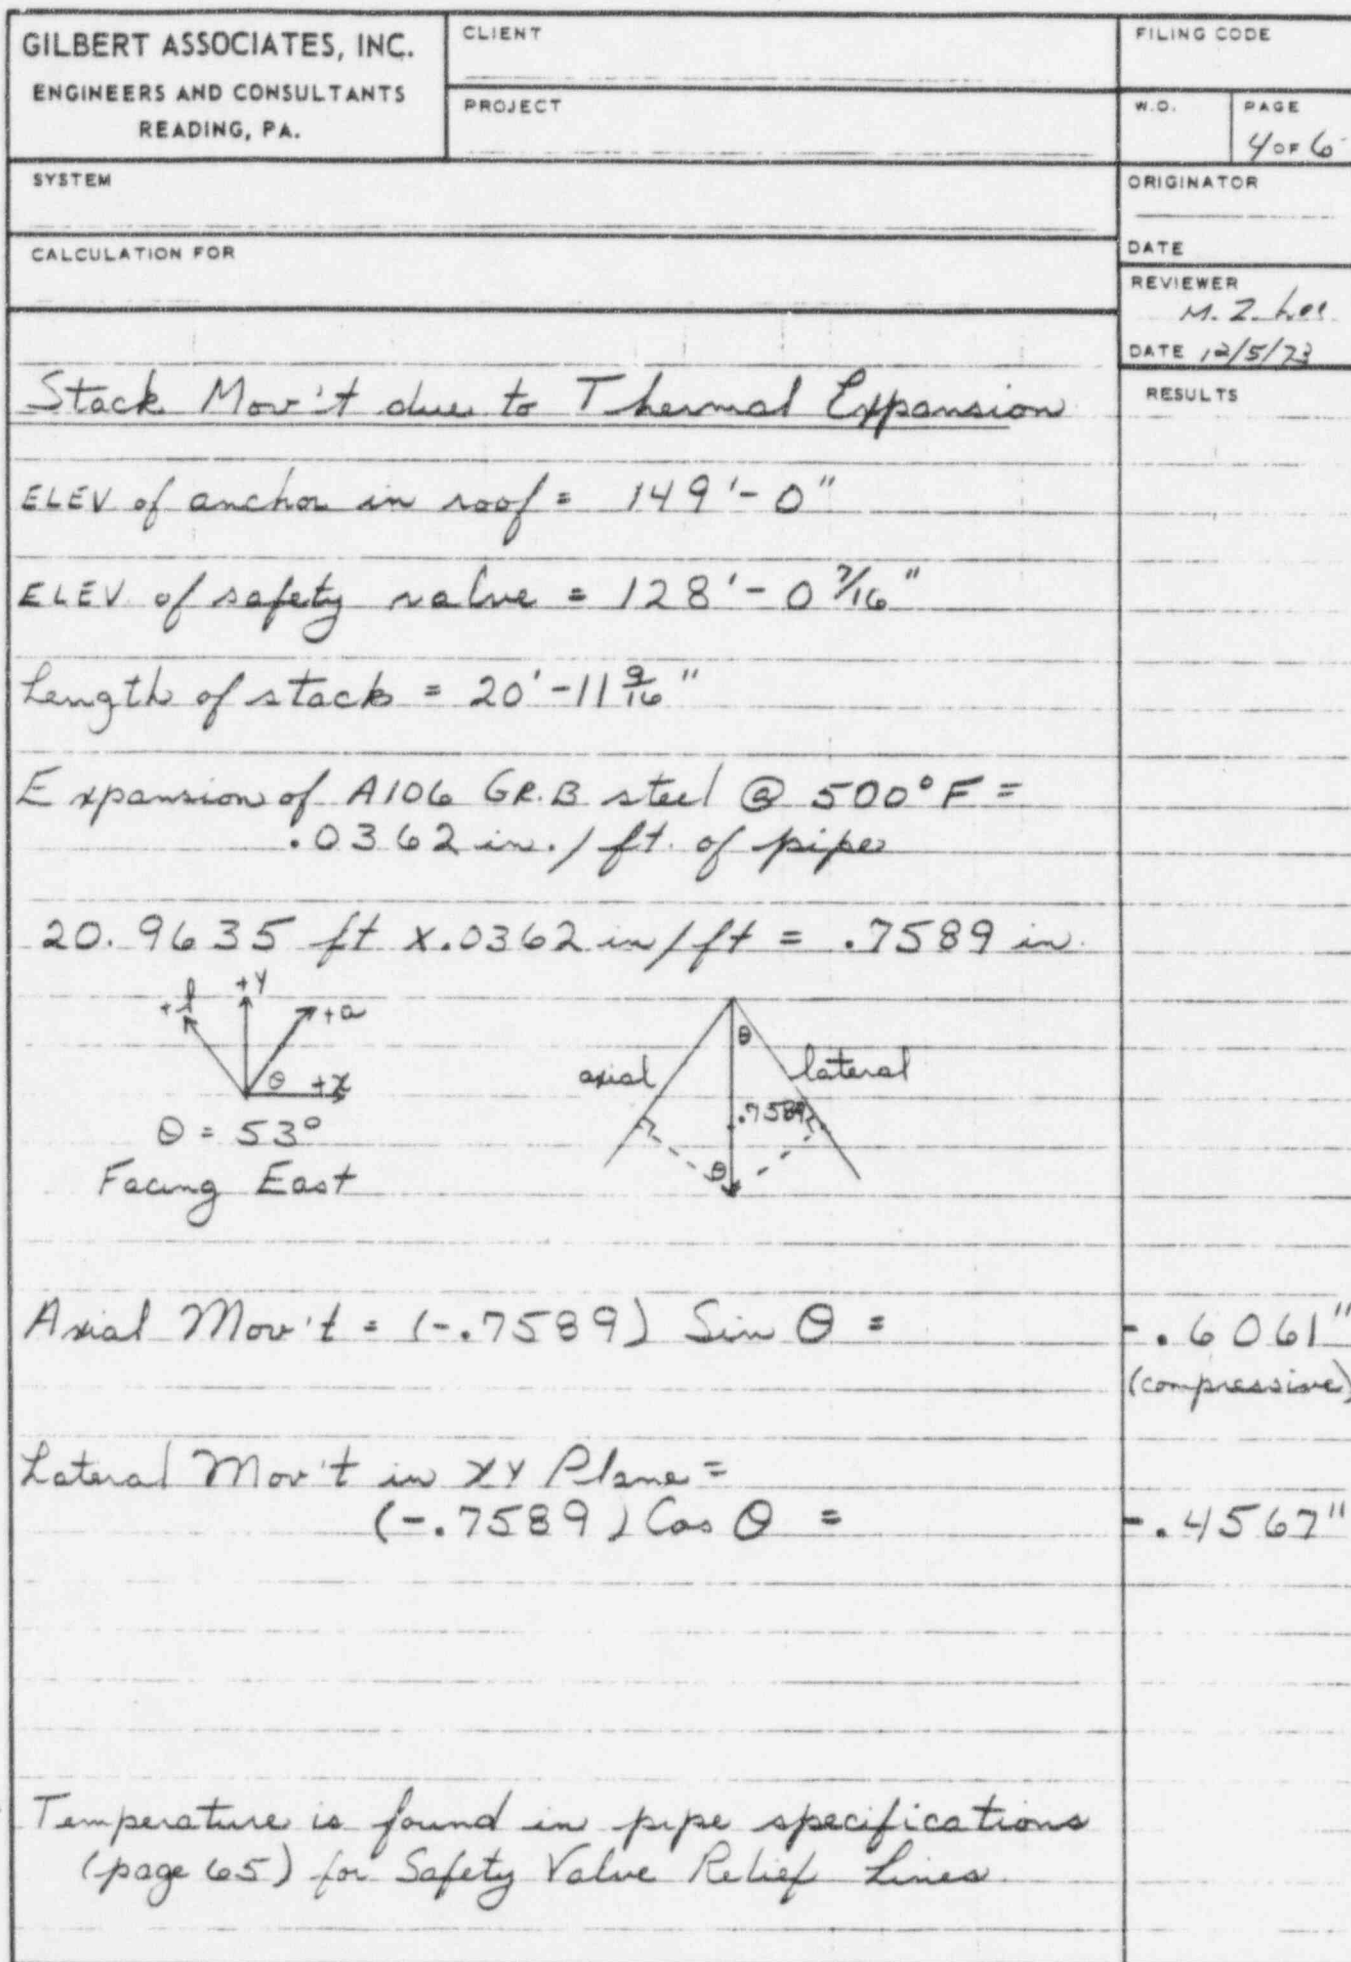 GILBERT ASSOCIATES, INC.
ENGINEERS AND CONSULTANTS
READING, PA.
CLIENT
PROJECT
FILING CODE
W.O.
PAGE
4 OF 6
SYSTEM
ORIGINATOR
DATE
CALCULATION FOR
REVIEWER
M. Z. Lee
DATE 12/5/73
RESULTS
Stack Mov't due to Thermal Expansion
ELEV of anchor in roof = 149'-0"
ELEV. of safety valve = 128'-0 7/16"
Length of stack = 20'-11 9/16"
Expansion of A106 GR.B steel @ 500°F =
.0362 in./ft. of pipe
20.9635 ft x .0362 in/ft = .7589 in.
+l
+y
+a
θ
+x
θ = 53°
Facing East
θ
axial
lateral
.7589
θ
Axial Mov't = (-.7589) Sin θ = -.6061"
(compressive)
Lateral Mov't in XY Plane =
(-.7589) Cos θ = -.4567"
Temperature is found in pipe specifications
(page 65) for Safety Valve Relief Lines.